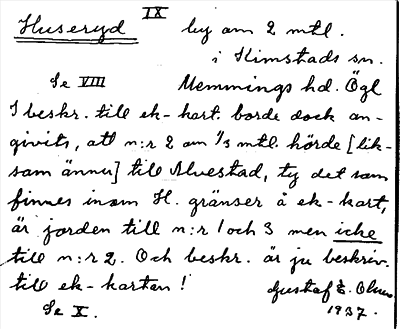 IX
Huseryd by om 2 mtl.
i Kimstads sn.
Se VIII Memmings hd. Ögl
I beskr. till ek-kart. borde dock an-
givits, att n:r 2 om 1/3 mtl. hörde [lik-
som ännu] till Alvestad, ty det som
finnes inom H. gränser å ek-kart,
är jorden till n:r 1 och 3 men icke
till n:r 2. Och beskr. är ju beskriv.
till ek-kartan! Gustaf E. Olsson
Se X. 1937.